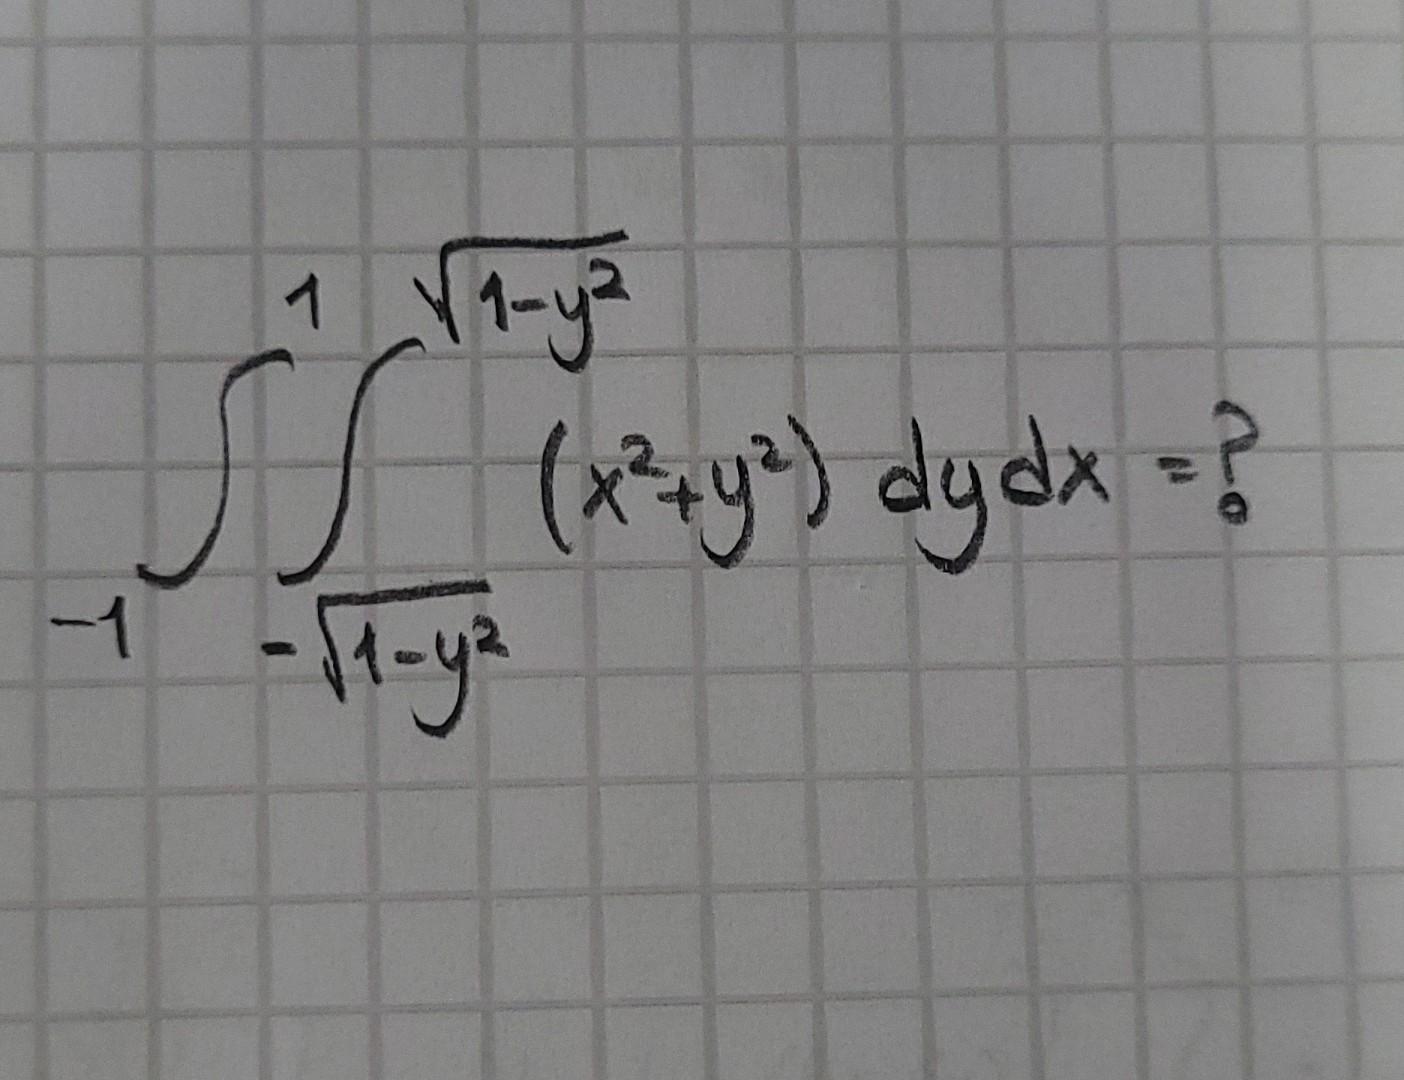 ∫_{-1}^{1} ∫_{-√(1-y²)}^{√(1-y²)} (x²+y²) dy dx = ?